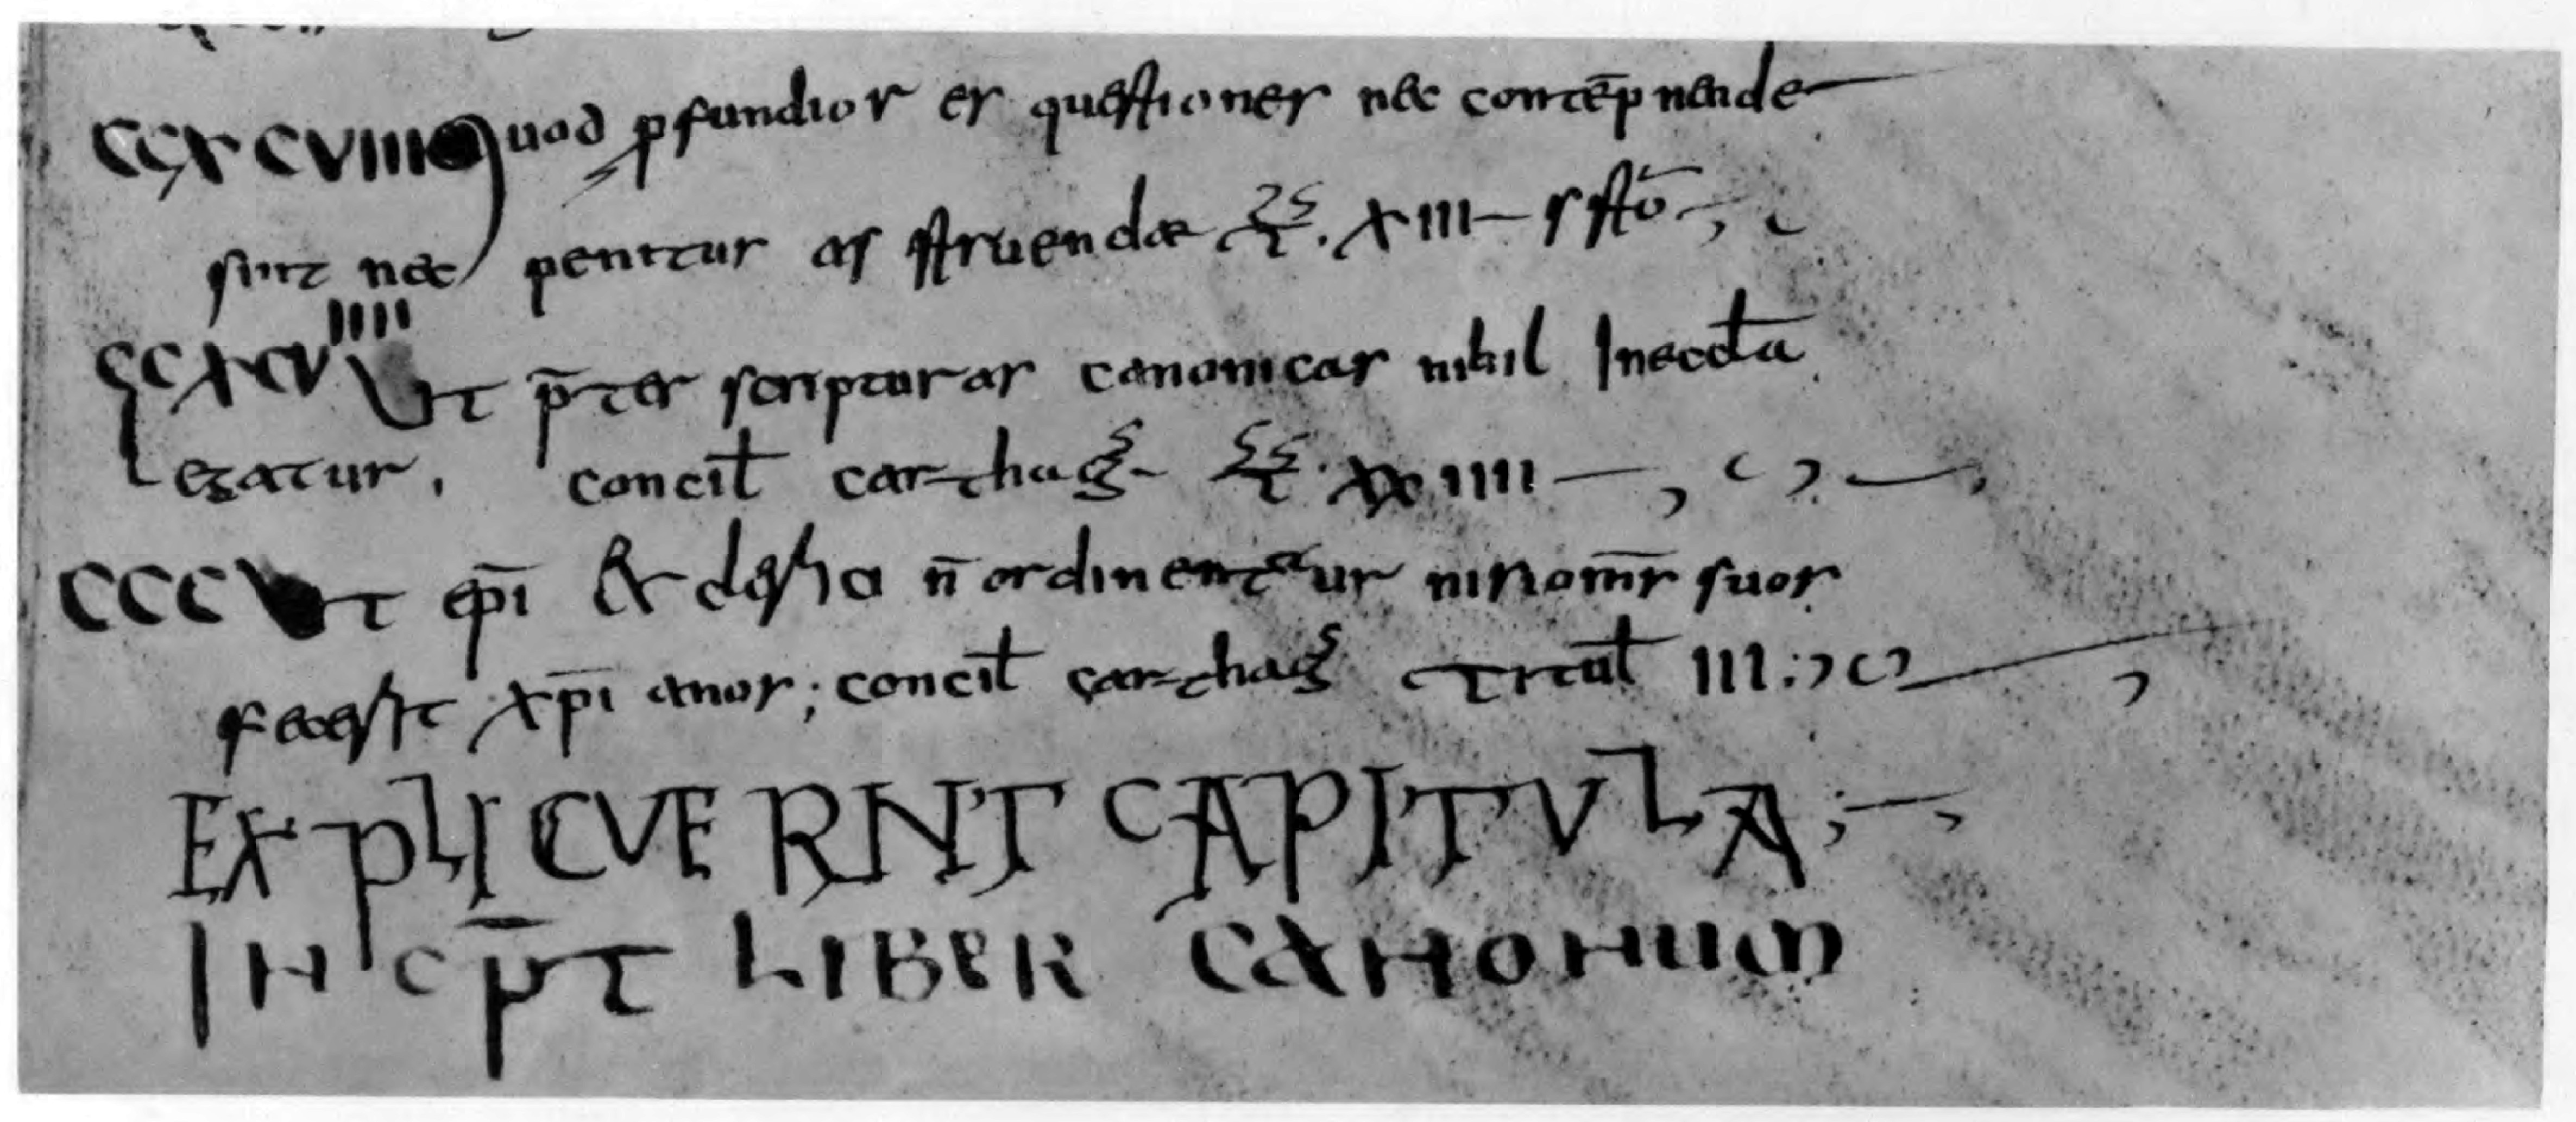 CCXCVIIII Quod p̄fundior es questiones nec contēpnende
sunt nec penitur as struendæ XIII
CCXCVIIII Ut p̄ter scripturas canonicas nihil In eccła
Legatur, concił carthag XXIIII
CCC Ut ep̄i & n̄ ordinentur nis om̄s suos
xp̄i anos; concił carthag titul III
EXPLICVERNT CAPITVLA;
INCP̄T LIBER CANONUM